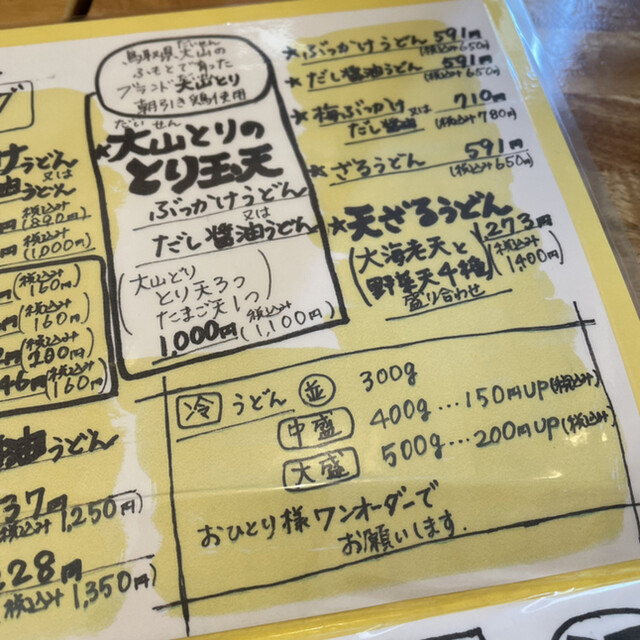 鳥取県大山の
ふもとで育った
ブランド大山どり
朝引き鶏使用
だいせん
★大山とりの
とり玉天
ぶっかけうどん
又は
だし醤油うどん
(大山どり
とり天3つ
たまご天1つ)
1,000円(税込み1,100円)
★ぶっかけうどん 591円(税込み650)
★だし醤油うどん 591円(税込み650)
★梅ぶっかけ又は
だし醤油 710円(税込み780円)
★ざるうどん 591円(税込み650)
★天ざるうどん
(大海老天と
野菜天4種
盛り合わせ)
273円
税込み
1,400円)
冷 うどん 並 300g
中盛 400g…150円UP(税込み)
大盛 500g…200円UP(税込み)
おひとり様ワンオーダーで
お願いします.
けうどん
又は
油うどん
円(税込み890円)
円(税込み1,000円)
円(税込み160円)
円(税込み160円)
46円(税込み160円)
油うどん
37円
税込み1,250円)
28円
税込み1,350円)